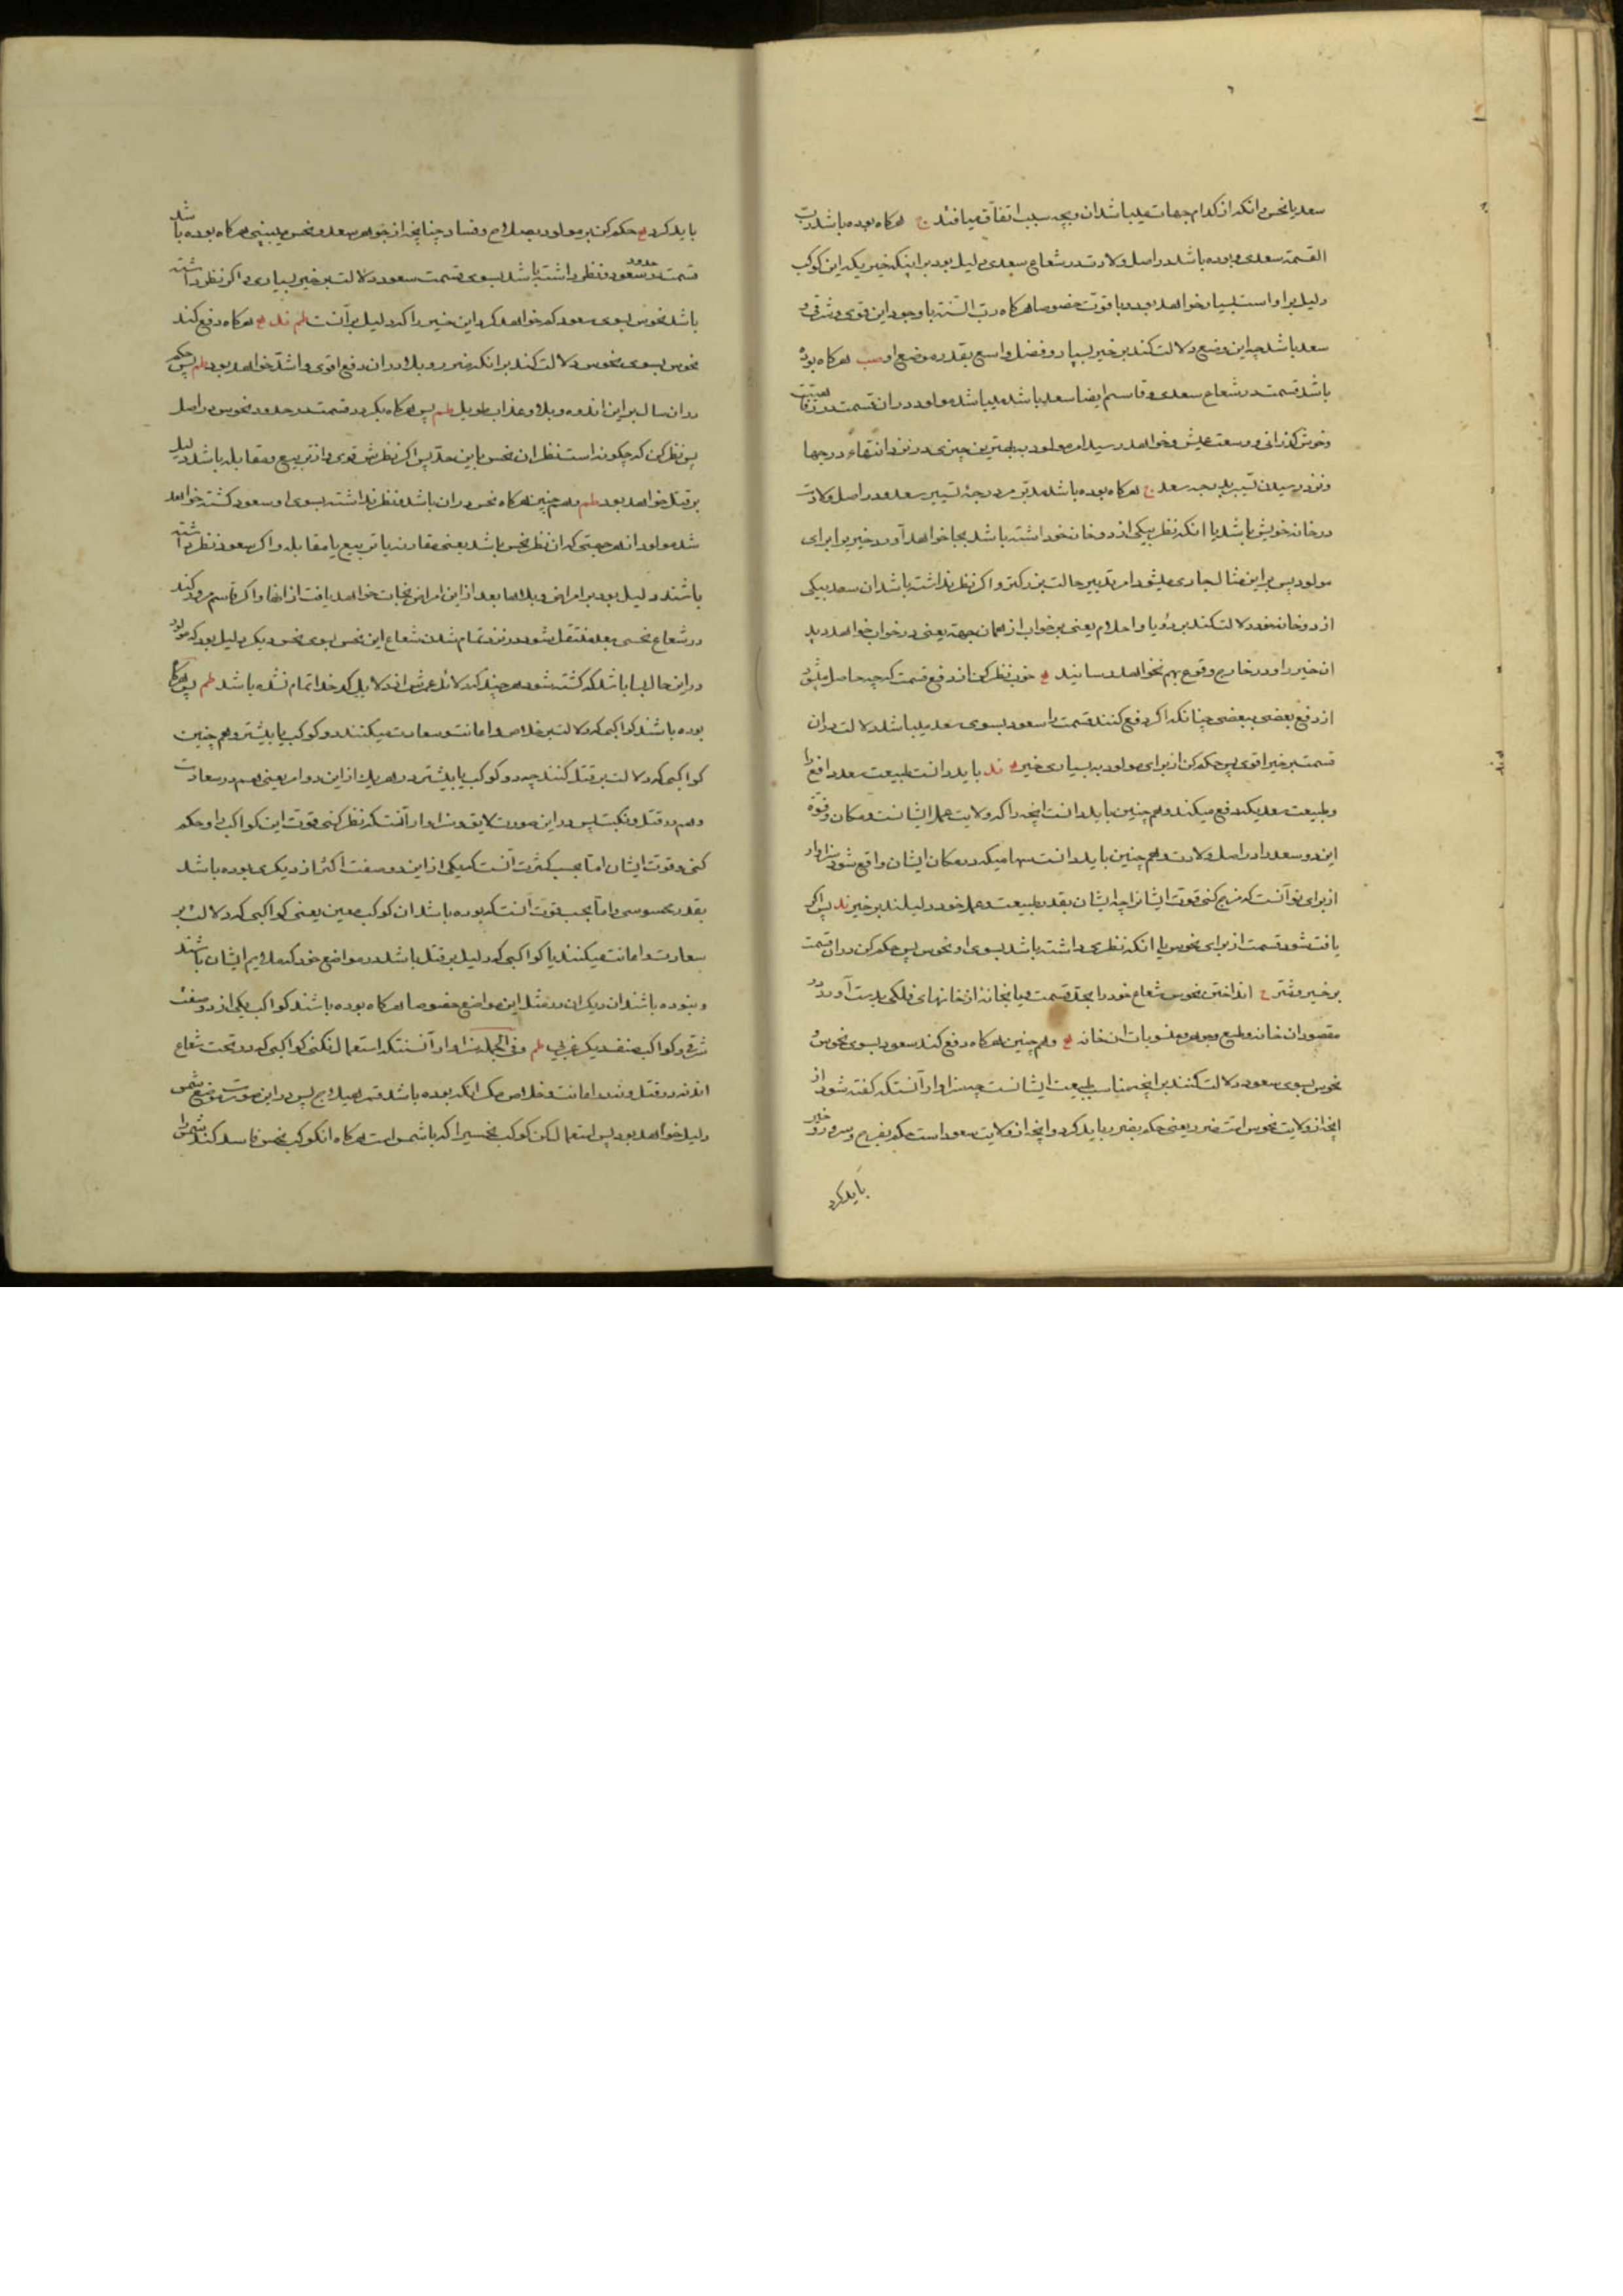 سعد یا نحس و انکه از کدام جهات میباشد ان و بچه سبب اتفاق میافتد ح هرکاه بوده باشد رب
القسمة سعدی و بوده باشد در اصل ولادت در شعاع سعدی دلیل بود بر اینکه خیر یکه این کوکب
دلیل بر او است بسیار خواهد بود و با قوت خصوصا هرکاه رب السنه با وجود این قوی و شرقی و
سعد باشد چه این وضع دلالت کند بر خیر بسیار و فضل واسع بقدر موضع او هرکاه بوده
باشد قسمت در شعاع سعدی و قاسم ایضا سعد باشد میباشد مولود در ان قسمت در رفاهیت
و خوش کذرانی و وسعت عیش و خواهد رسید امر مولود به بهترین چیزی در نزد انتهاء درجها
و نزد رسیدن تسییر بدرجه سعد ح هرکاه بوده باشد مدبر درجهٔ تسییر سعد و در اصل ولادت
در خانه خویش باشد یا انکه نظر بیکی از دو خانه خود داشته باشد بجا خواهد آورد خیر را برای
مولود پس بر این مثال جاری میشود امر تدبیر حالت بزرکتر و اکر نظر نداشته باشد ان سعد بیکی
از دو خانه خود دلالت کند بر رؤیا و احلام یعنی بر خواب از همان جهة یعنی در خواب خواهد دید
ان خیر را و در خارج وقوع بهم نخواهد رسانید خوب نظر کن از دفع قسمت که چه حاصل میشود
از دفع بعضی ببعضی چنانکه اکر دفع کنند قسمت را سعود بسوی سعد میباشد دلالت در ان
قسمت بر خیر اقوی پس حکم کن از برای مولود به بسیاری خیر باید دانست طبیعت سعد دافع را
و طبیعت سعدیکه دفع میکند و هم چنین باید دانست انچه را که ولایت عمل ایشانست و مکان و قوة
این دو سعد را در اصل ولادت و هم چنین باید دانست سهامیکه در مکان ایشان واقع شود سزاوار
از برای تو آنست که مزج کنی قوت ایشان را چه ایشان بقدر طبیعت و عمل خود دلیلند بر خیر پس اکر
یافت شود قسمت از برای نحوس یا انکه نظری داشته باشد بسوی او نحوس پس حکم کن در ان قسمت
بر خیر و شر ح انداختن نحوس شعاع خود را بحد قسمت میانجا نه از خانهای فلکی بدست آورد
مقصود ان خانه و طبع و جوهر و منسوبات ان خانه و هم چنین هرکاه دفع کند سعود بسوی نحوس و
نحوس بسوی سعود دلالت کنند بر انچه مناسب طبیعت ایشانست چه سزاوار آنستکه کفته شود از
انچه از ولایت نحوس است ضرر یعنی حکم بضرر باید کرد و انچه از ولایت سعود است حکم بفرح و سرور و خیر
باید کرد
باید کرد حکم کن بر مولود بصلاح و فساد چنانچه از جوهر سعد و نحس می بینی هرکاه بوده باشد
قسمت در حدود سعود و نظر داشته باشد بسوی قسمت سعود دلالت بر خیر بسیاری و اکر نظر داشته
باشد نحوس بسوی سعود کم خواهد کرد این خیر را که دلیل بر آنست هرکاه دفع کند
نحوس بسوی نحوس دلالت کند بر انکه ضرر و بلا در ان دفع اقوی و اشد خواهد بود پس حکم
در ان سال بر این اندوه و بلا و عذاب طویل پس هرکاه بکردد قسمت در حدود نحوس در اصل
پس نظر کن که چکونه است نظر ان نحس باین حد پس اکر نظرش قوی و از تربیع و مقابله باشد دلیل
بر قتل خواهد بود و هم چنین هرکاه نحس در ان باشد و نظر نداشته بسوی او سعود کشته خواهد
شد مولود از هر جهتی که ان نظر نحس باشد یعنی مقارنه یا تربیع یا مقابله و اکر سعود نظر داشته
باشند دلیل بود بر امراض و بلاها بعد از این امراض نجات خواهد یافت از انها و اکر قاسم مرور کند
در شعاع نحسی بعد منتقل شود در نزد تمام شدن شعاع این نحس بسوی نحس دیکر دلیل بود که مولود
در این حال بسا باشد که کشته شود هر چند که دلائل عمرش از دلایل کدخدا تمام نشده باشد پس هرکاه
بوده باشند کواکبی که دلالت بر خلاص و اعانت و سعادت میکنند دو کوکب یا بیشتر و هم چنین
کواکبی که دلالت بر قتل کنند چه دو کوکب یا بیشتر در هر یک از این دو امر یعنی هم در سعادت
و هم در قتل و نکبت پس در این صورت لایق و سزاوار آنست که نظر کنی قوت این کواکب را و حکم
کنی و قوت ایشان اما بحسب کثرت آنست که یکی از این دو صفت اکثر از دیکری بوده باشد
بقدر محسوسی و اما بحسب قوت آنست که بوده باشد ان کوکب معین یعنی کواکبی که دلالت بر
سعادت و اعانت میکنند یا کواکبی که دلیل بر قتل باشد در مواضع خود که ملایم ایشان باشند
و نبوده باشند ان دیکران در مثل این مواضع خصوصا هرکاه بوده باشند کواکب یکی از دو صفت
شرقی و کواکب صنف دیکر غربی و فی الجمله سزاوار آنستکه استعمال نکنی کواکبی که در تحت شعاع
اندنه در قتل و نه در اعانت و خلاص مکر انکه بوده باشد قمر هیلاج پس در این صورت موضع شمس
دلیل خواهد بود پس استعمال کن کوکب نحسی را که با شمس است هرکاه انکوکب نحس فاسد کند شمس را